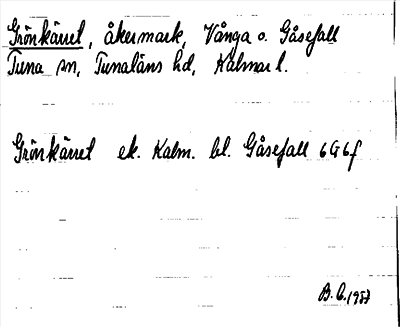 Grönkärret, åkermark, Vånga o. Gåsefall
Tuna sn, Tunaläns hd, Kalmar l.
Grönkärret ek. Kalm. bl. Gåsefall 6G6f
B.C. 1957